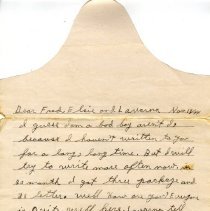 Dear Fred, Elsie and Laverna Nov. 18th
I guess I am a bad boy aren't I
because I haven't written to you
for a long, long time. But I will
try to write more often now, in
as month I got three package and
as letters. well how are you? I'm
is quite well here. Laverna tell